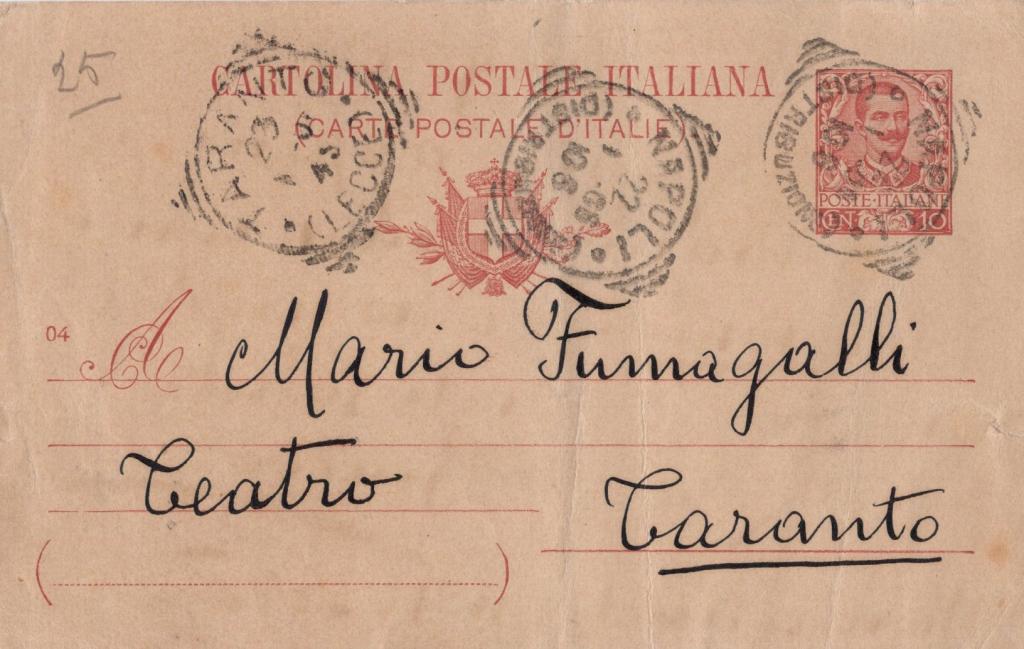 25
CARTOLINA POSTALE ITALIANA
(CARTE POSTALE D'ITALIE)
TARANTO
(LECCE)
23
NAPOLI
(DISTRIBUZ
22
NAPOLI
(DISTRIBUZ
POSTE·ITALIANE
CEN 10
04
A Mario Fumagalli
Teatro
Taranto